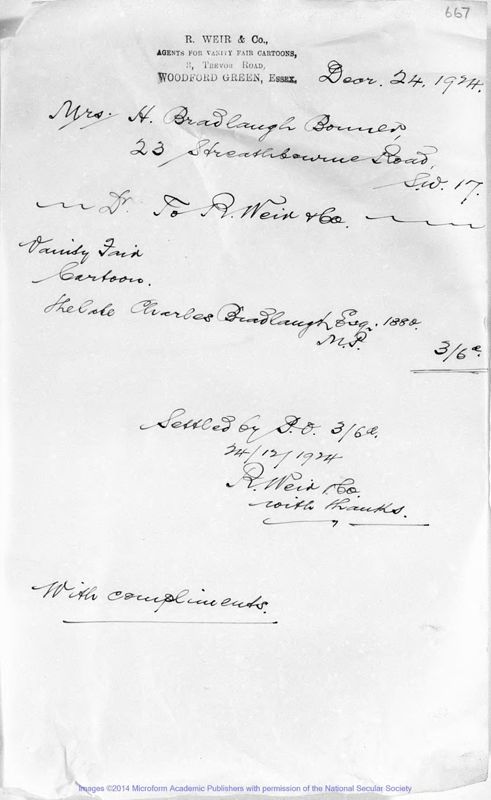 667
R. WEIR & Co.,
AGENTS FOR VANITY FAIR CARTOONS,
3, TREVOR ROAD,
WOODFORD GREEN, ESSEX.
Decr. 24, 1924.
Mrs. H. Bradlaugh Bonner,
23 Streathbourne Road,
S.W. 17.
Dr. To R. Weir & Co.
Vanity Fair
Cartoon.
The late Charles Bradlaugh, Esq. 1880.
M.P.
3/6d.
Settled by P.O. 3/6d.
24/12/1924
R. Weir & Co.
with thanks.
With compliments.
Images ©2014 Microform Academic Publishers with permission of the National Secular Society